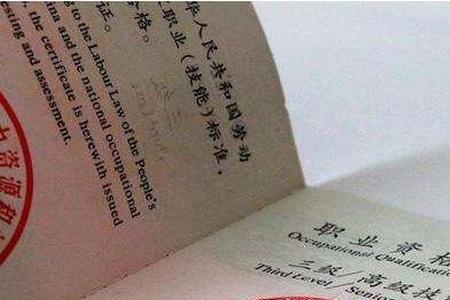 华人民共和国劳动
职业（技能）标准，
格。
证。
to the Labour Law of the People's
and the national occupational
the certificate is herewith issued
and assessment.
力资源
职业资格
Occupational Qualificati
三级/高级技
Third Level / Senio